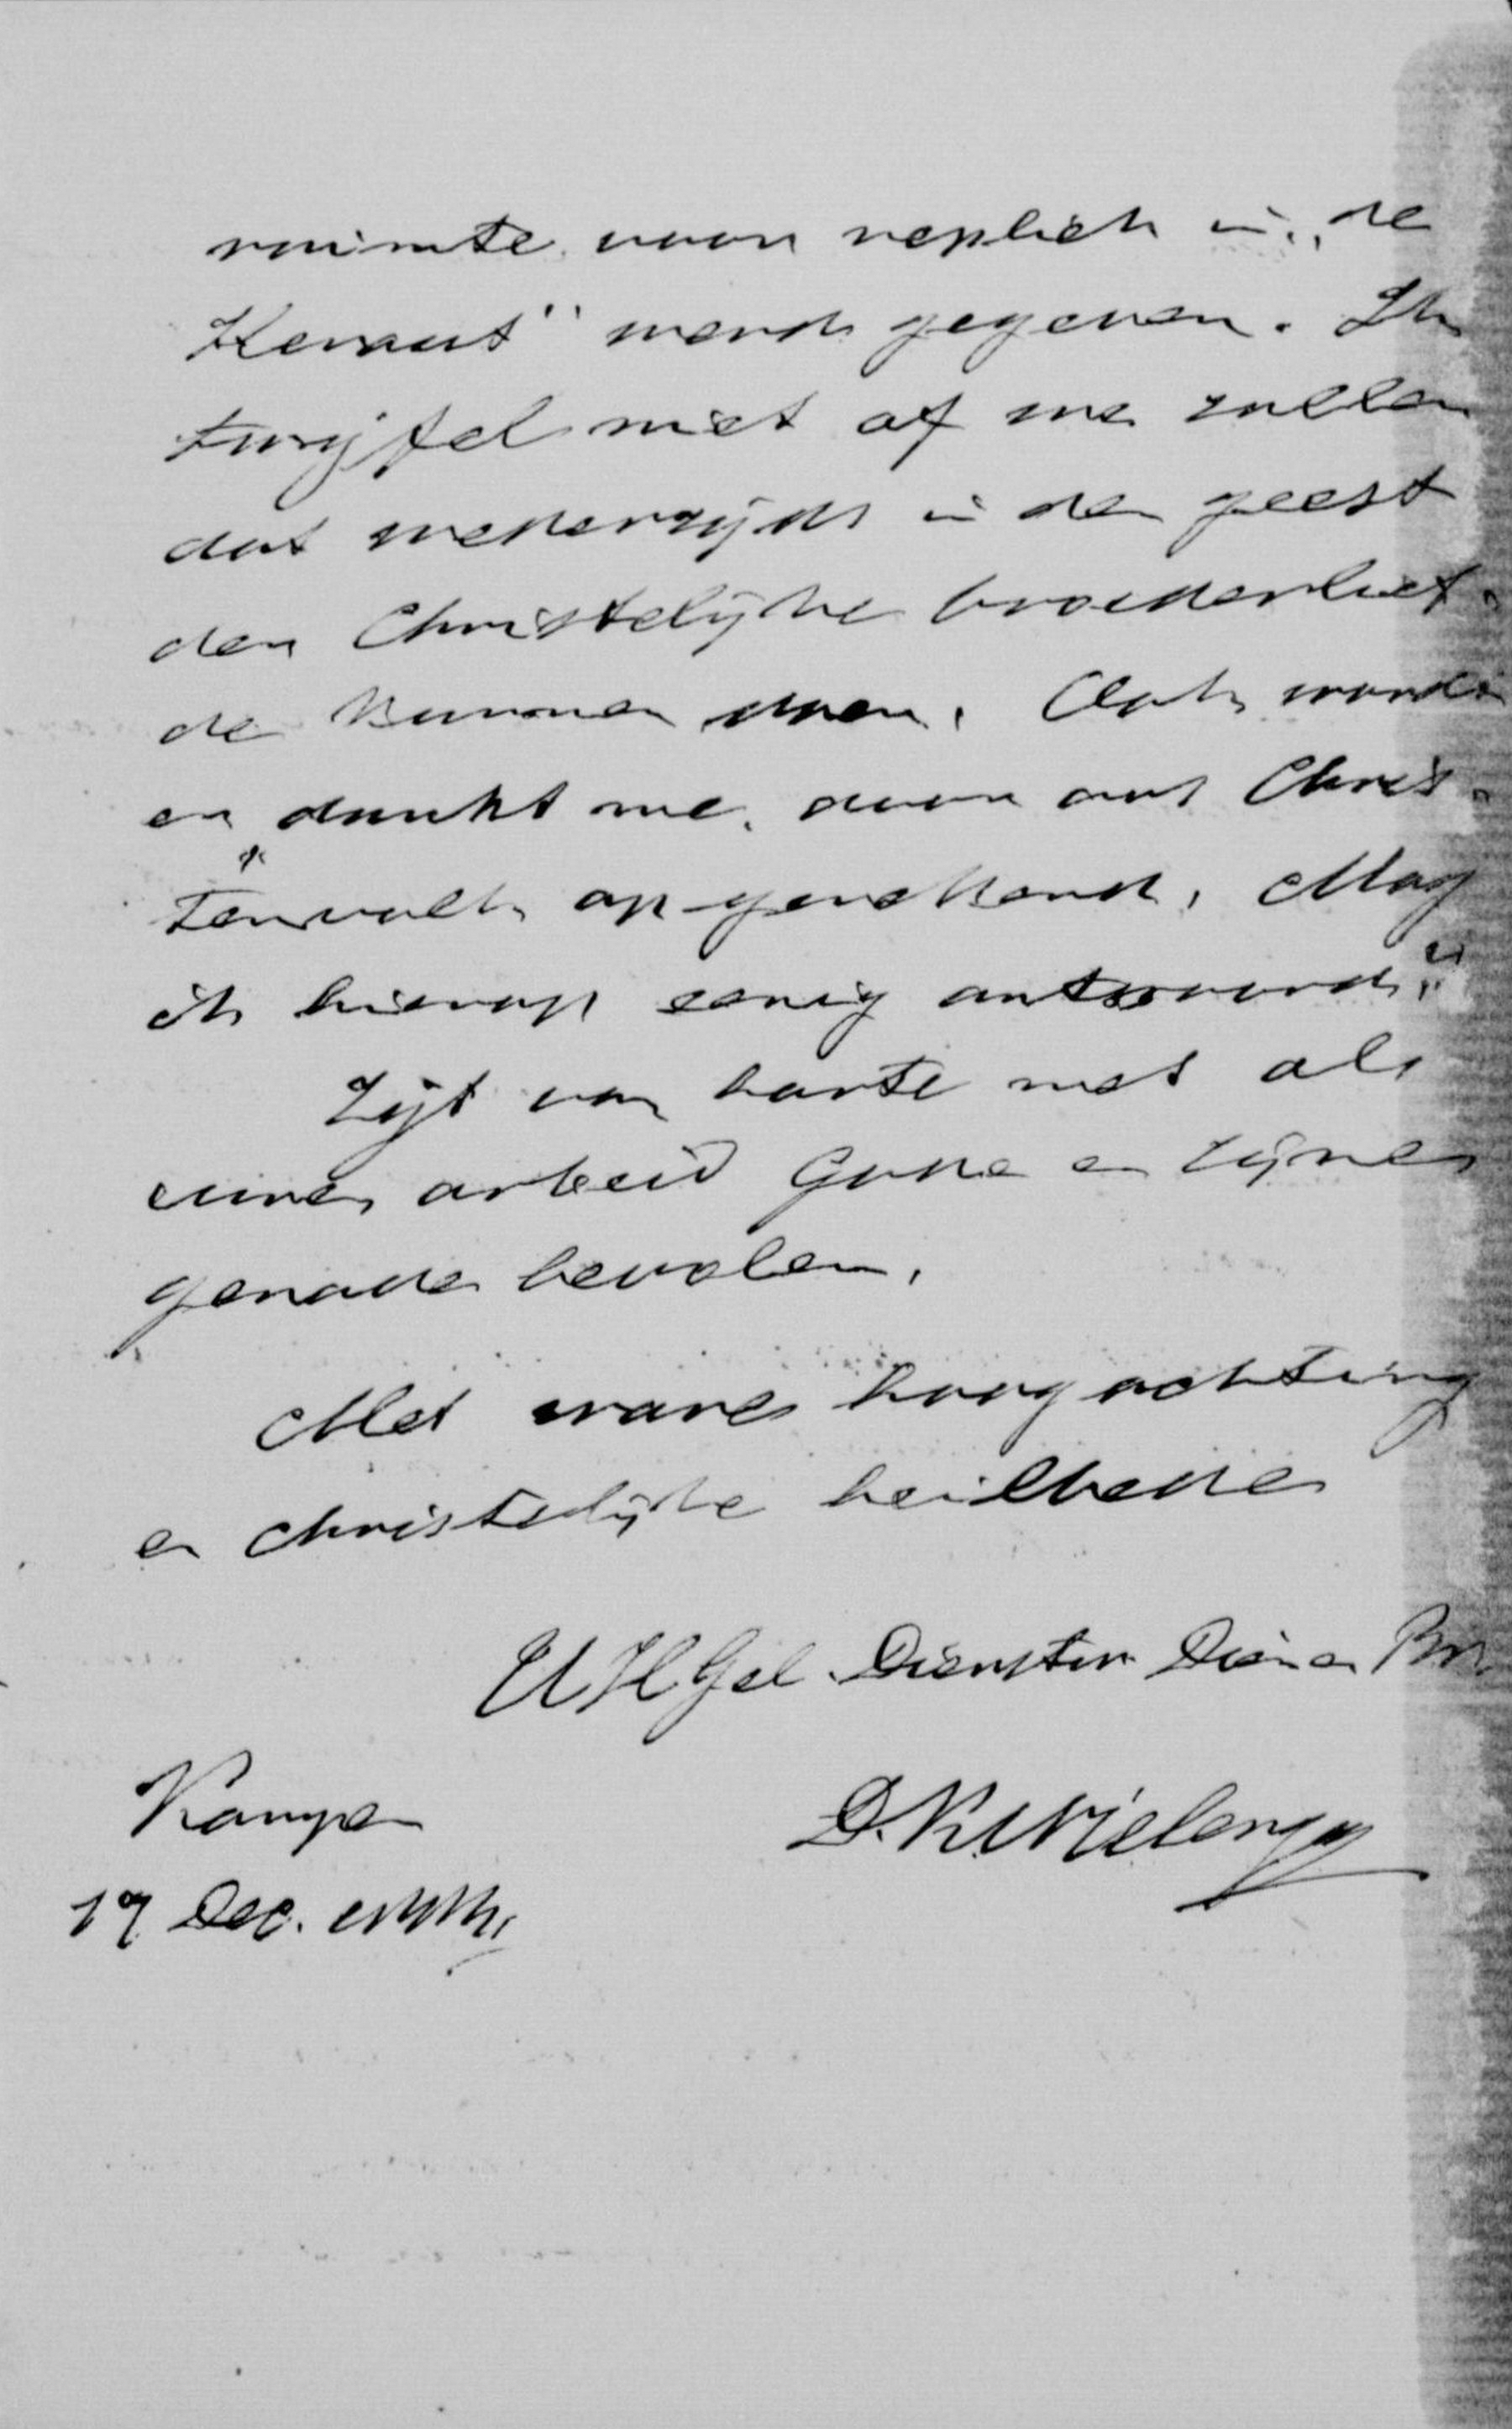 ruimte voor repliek in „de
Heraut" werd gegeven. Ik
twijfel niet of we zullen
dat wederzijds in den geest
der Christelijke broederlief-
de kunnen doen. Ook wordt
er dunkt me, door ons Chris-
tenvolk op gerekend. Mag
ik hierop eenig antwoord?
Zijt van harte met al
uwen arbeid Gode en Zijne
genade bevolen.
Met ware hoogachting
en christelijke heilbede
UHGel. Dienstw. Dien. en Br.
Kampen
D.K. Wielenga
17 Dec.